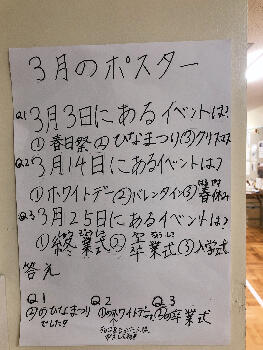 3月のポスター
Q1 3月3日にあるイベントは?
①春日祭②ひなまつり③クリスマス
Q2 3月14日にあるイベントは?
①ホワイトデー②バレンタイン③春休み
Q3 3月25日にあるイベントは?
①終業式②卒業式③入学式
答え
Q1 Q2 Q3
②のひなまつり ①のホワイトデー ②の卒業式
でした!!